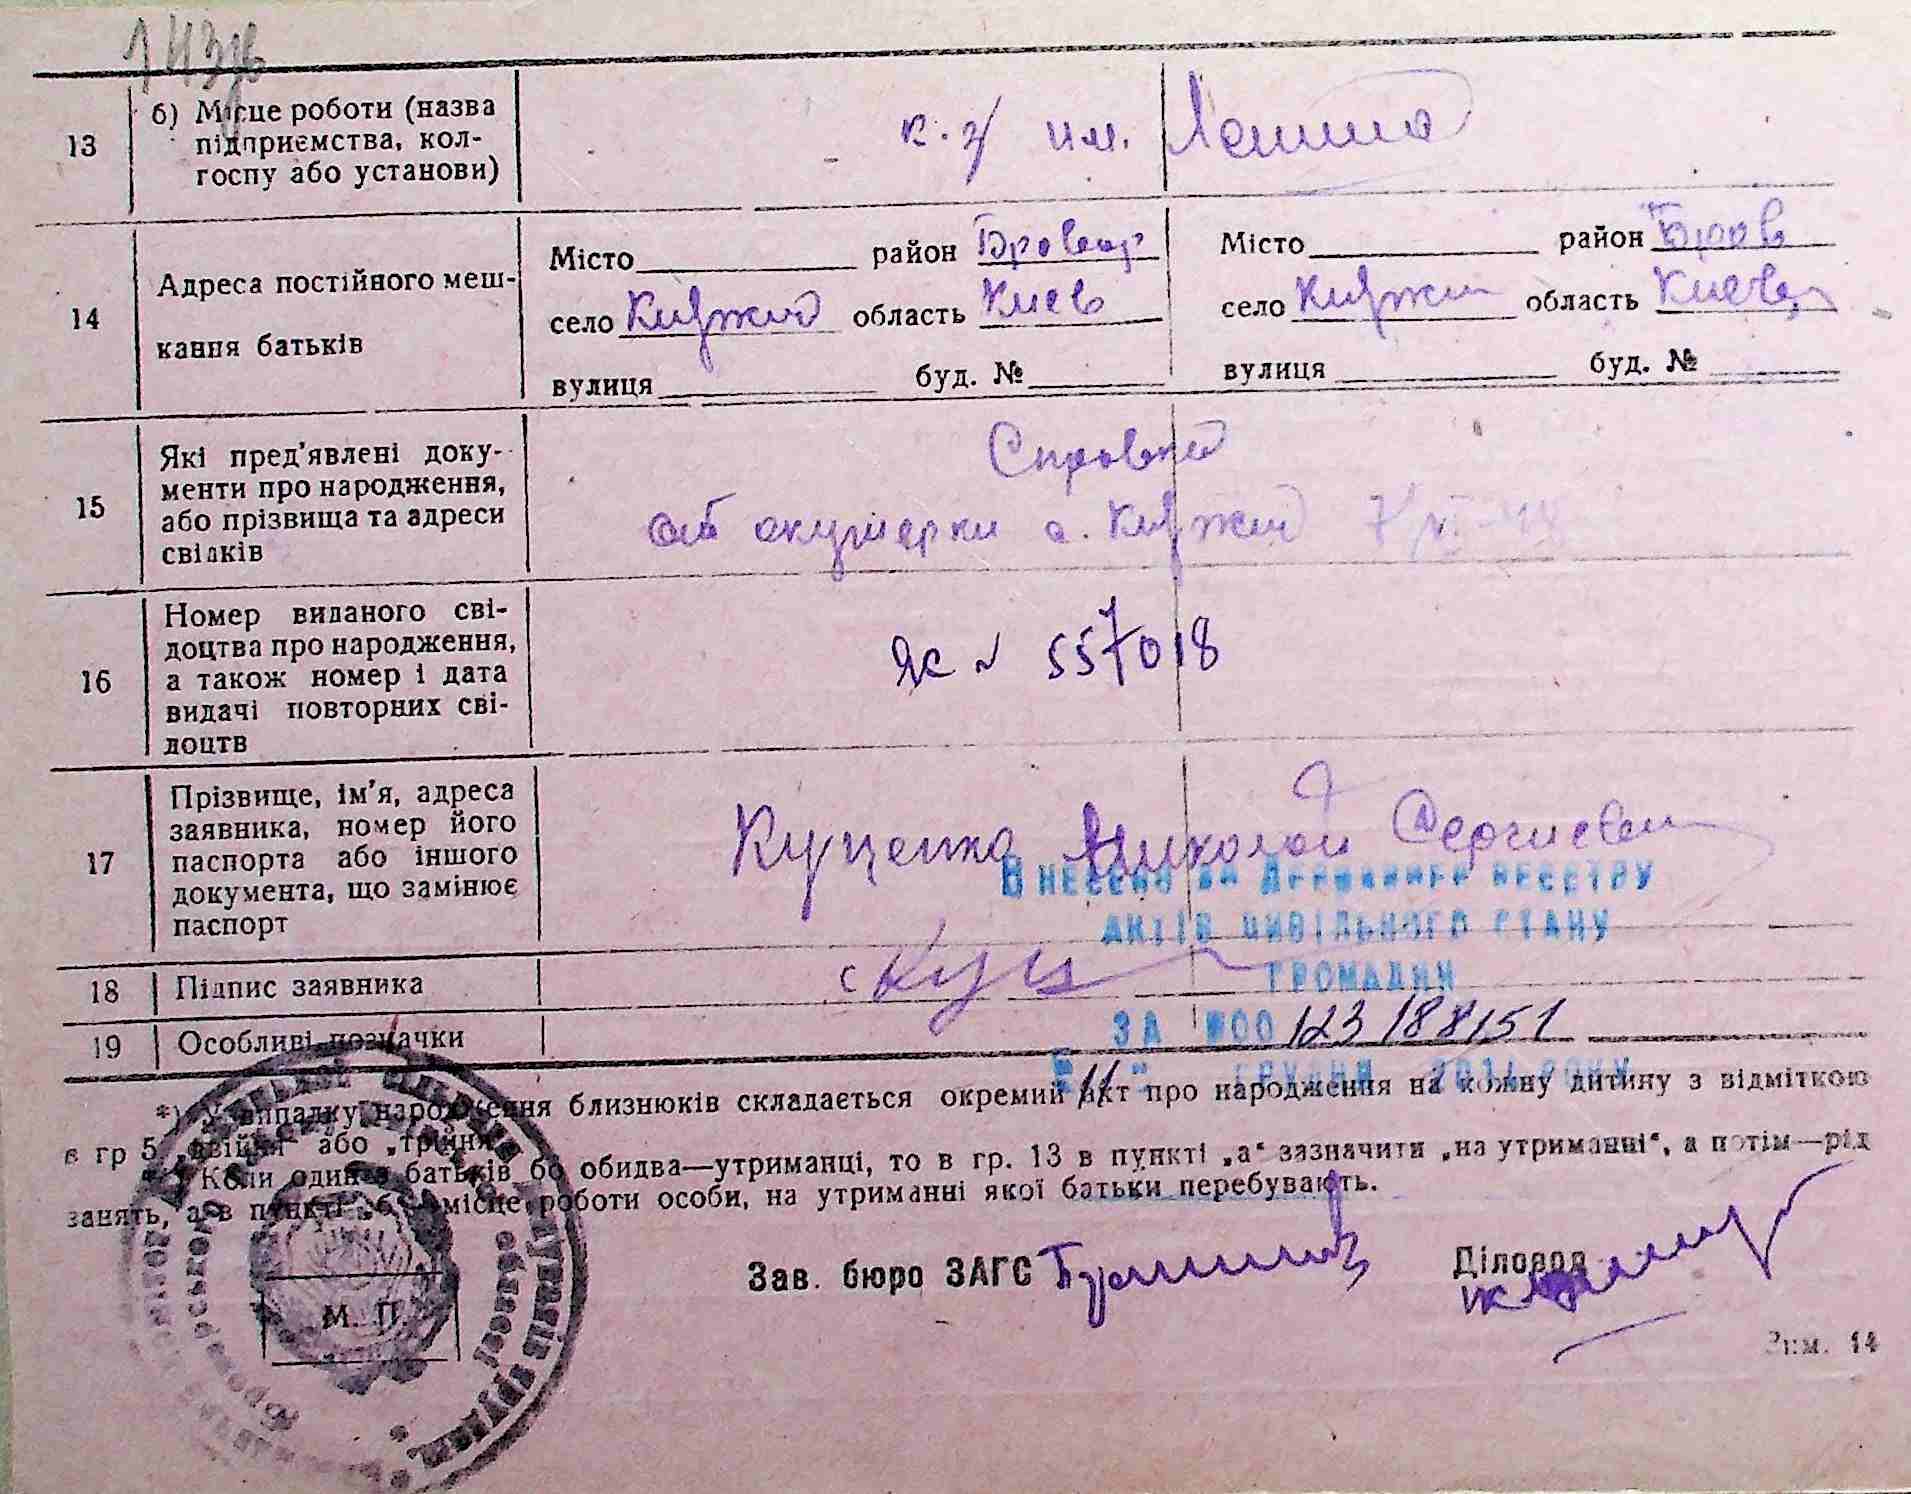 13
б) Місце роботи (назва
підприємства, кол-
госпу або установи)
к.з им. Ленина
14
Адреса постійного меш-
кання батьків
Місто район Бровар
село Княжич область Киев
вулиця буд. №
Місто район Бров
село Княжич область Киевск
вулиця буд. №
15
Які пред'явлені доку-
менти про народження,
або прізвища та адреси
свідків
Справка
от акушерки с. Княжич
16
Номер виданого сві-
доцтва про народження,
а також номер і дата
видачі повторних сві-
доцтв
ЯС № 557018
17
Прізвище, ім'я, адреса
заявника, номер його
паспорта або іншого
документа, що замінює
паспорт
Куценко Николай Сергиевич
Внесено до Державного реєстру
актів цивільного стану
громадян
18
Підпис заявника
Куц
19
Особливі позначки
ЗА №00123188151
"11" грудня 2014 року
*) У випадку народження близнюків складається окремий акт про народження на кожну дитину з відміткою
в гр 5 „двійня“ або „трійня“
Коли один з батьків бо обидва—утриманці, то в гр. 13 в пункті „а“ зазначити „на утриманні“, а потім—рід
занять, а в пункті „б“ місце роботи особи, на утриманні якої батьки перебувають.
Зав. бюро ЗАГС
Діловод
М. П.
Зам. 14